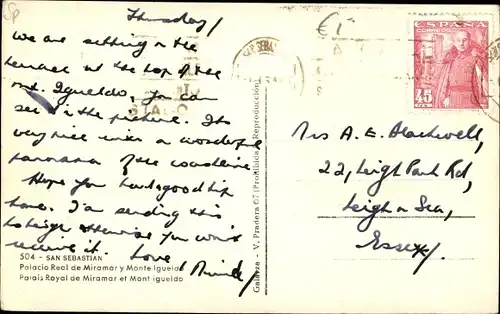 Sp
Thursday/
We are sitting on the
terrace at the top of the
mt. Igueldo, you can
see it in the picture. It's
very nice with a wonderful
panorama of the coastline
Hope you had a good trip
home. I'm sending this
to Leigh otherwise you won't
receive it. Love
504 - SAN SEBASTIAN
Palacio Real de Miramar y Monte Igueldo
Palais Royal de Miramar et Mont-Igueldo
Galarza - V. Pradera 67 (Prohibida la Reproducción)
€1
ESPAÑA
CORREOS
45
CTS
Mrs A. E. Blackwell,
22, Leigh Park Rd,
Leigh on Sea,
Essex.